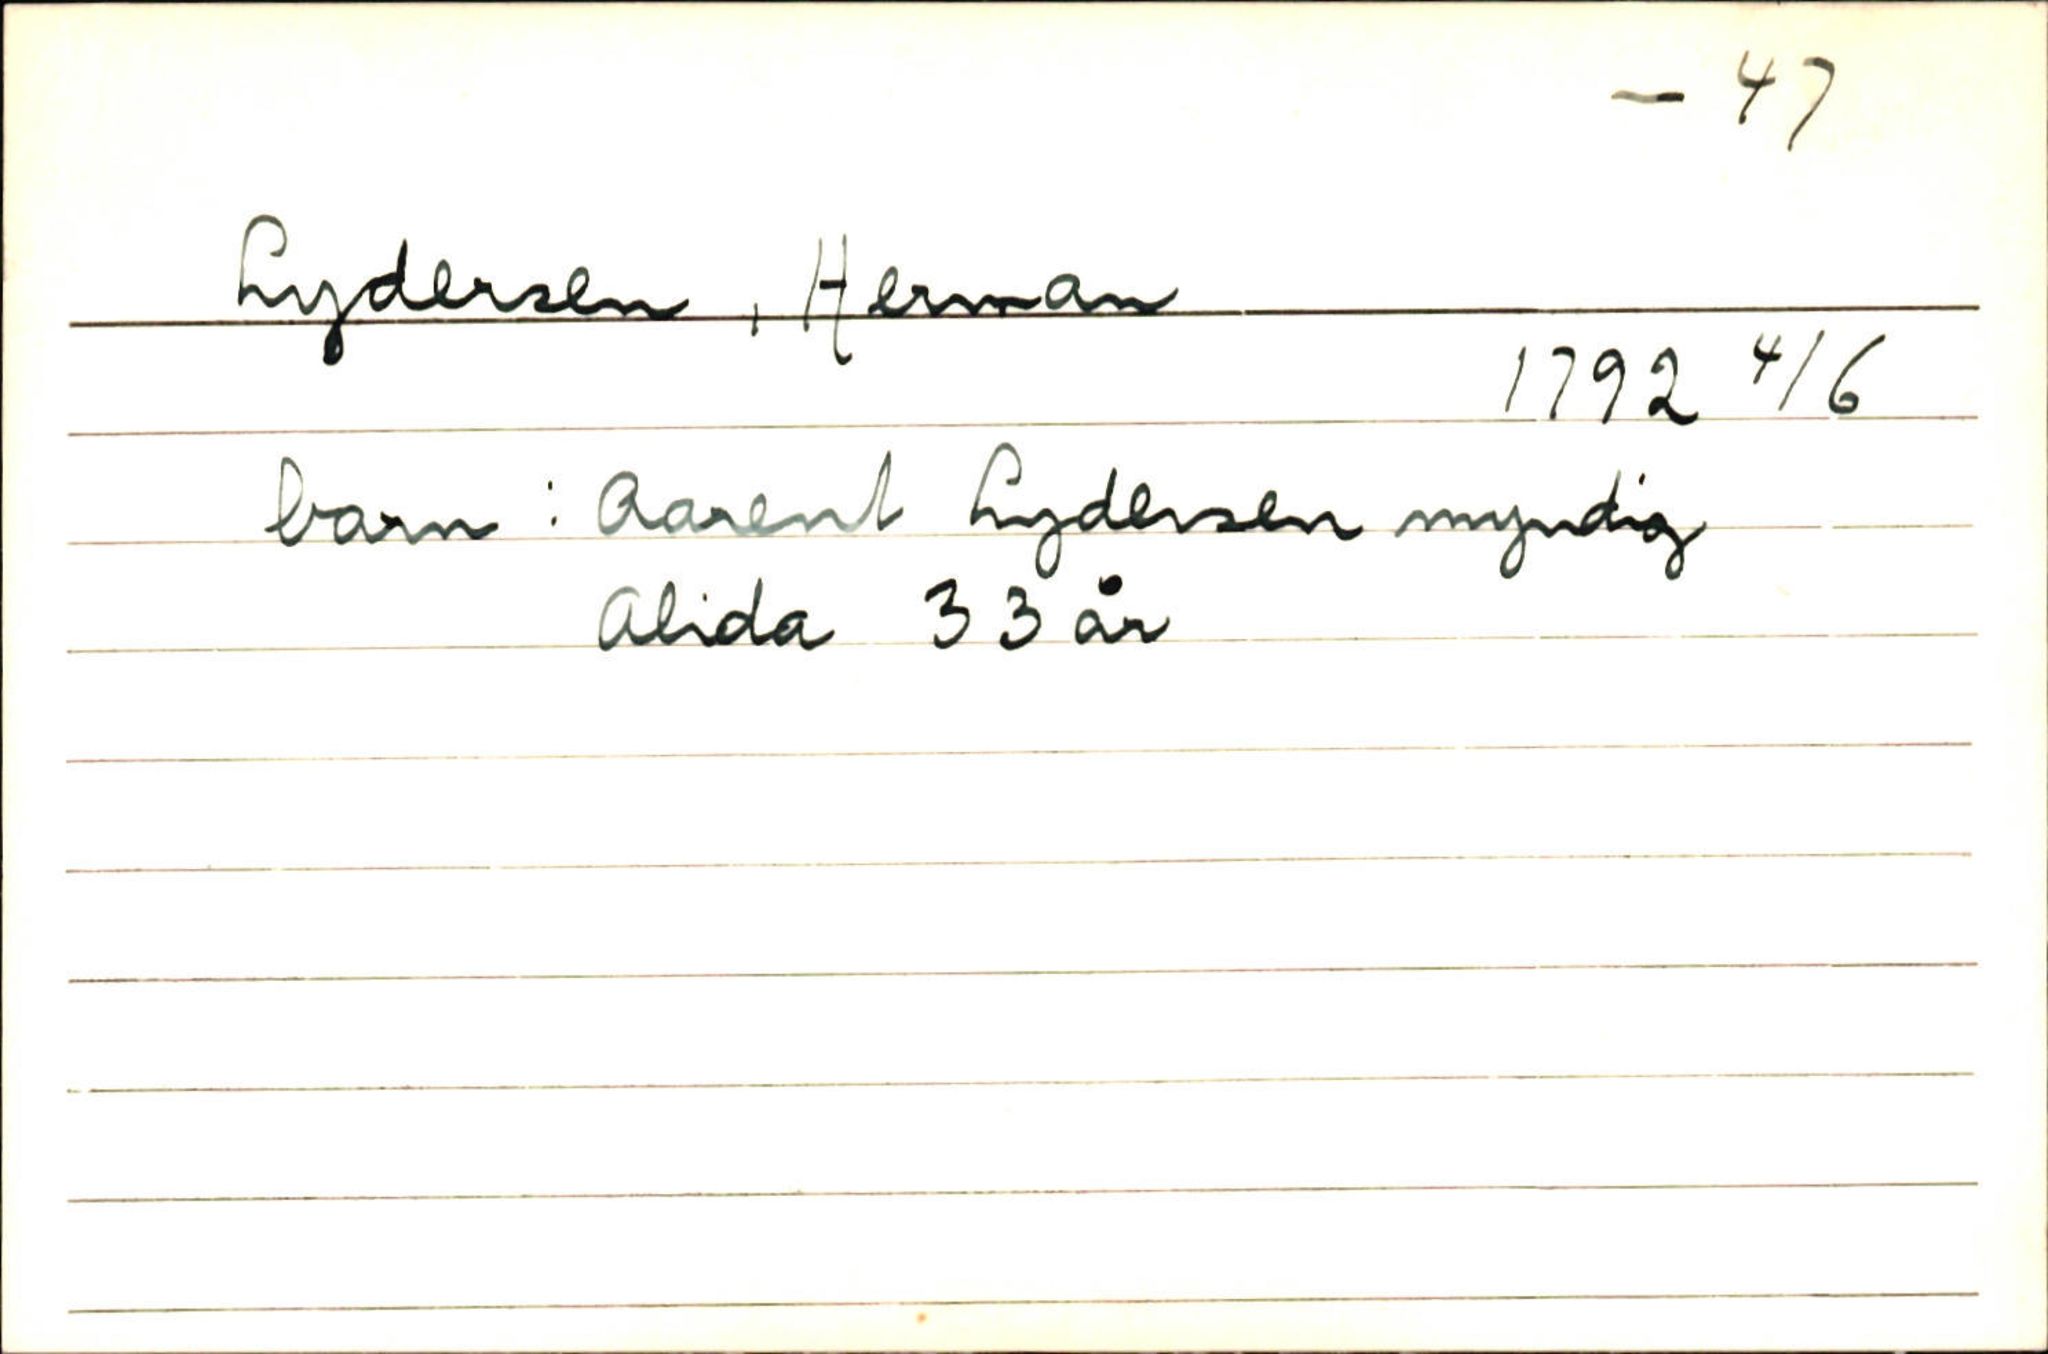 — 47
Lydersen, Herman
1792 4/6
barn : Aarent Lydersen myndig
Alida 33 år